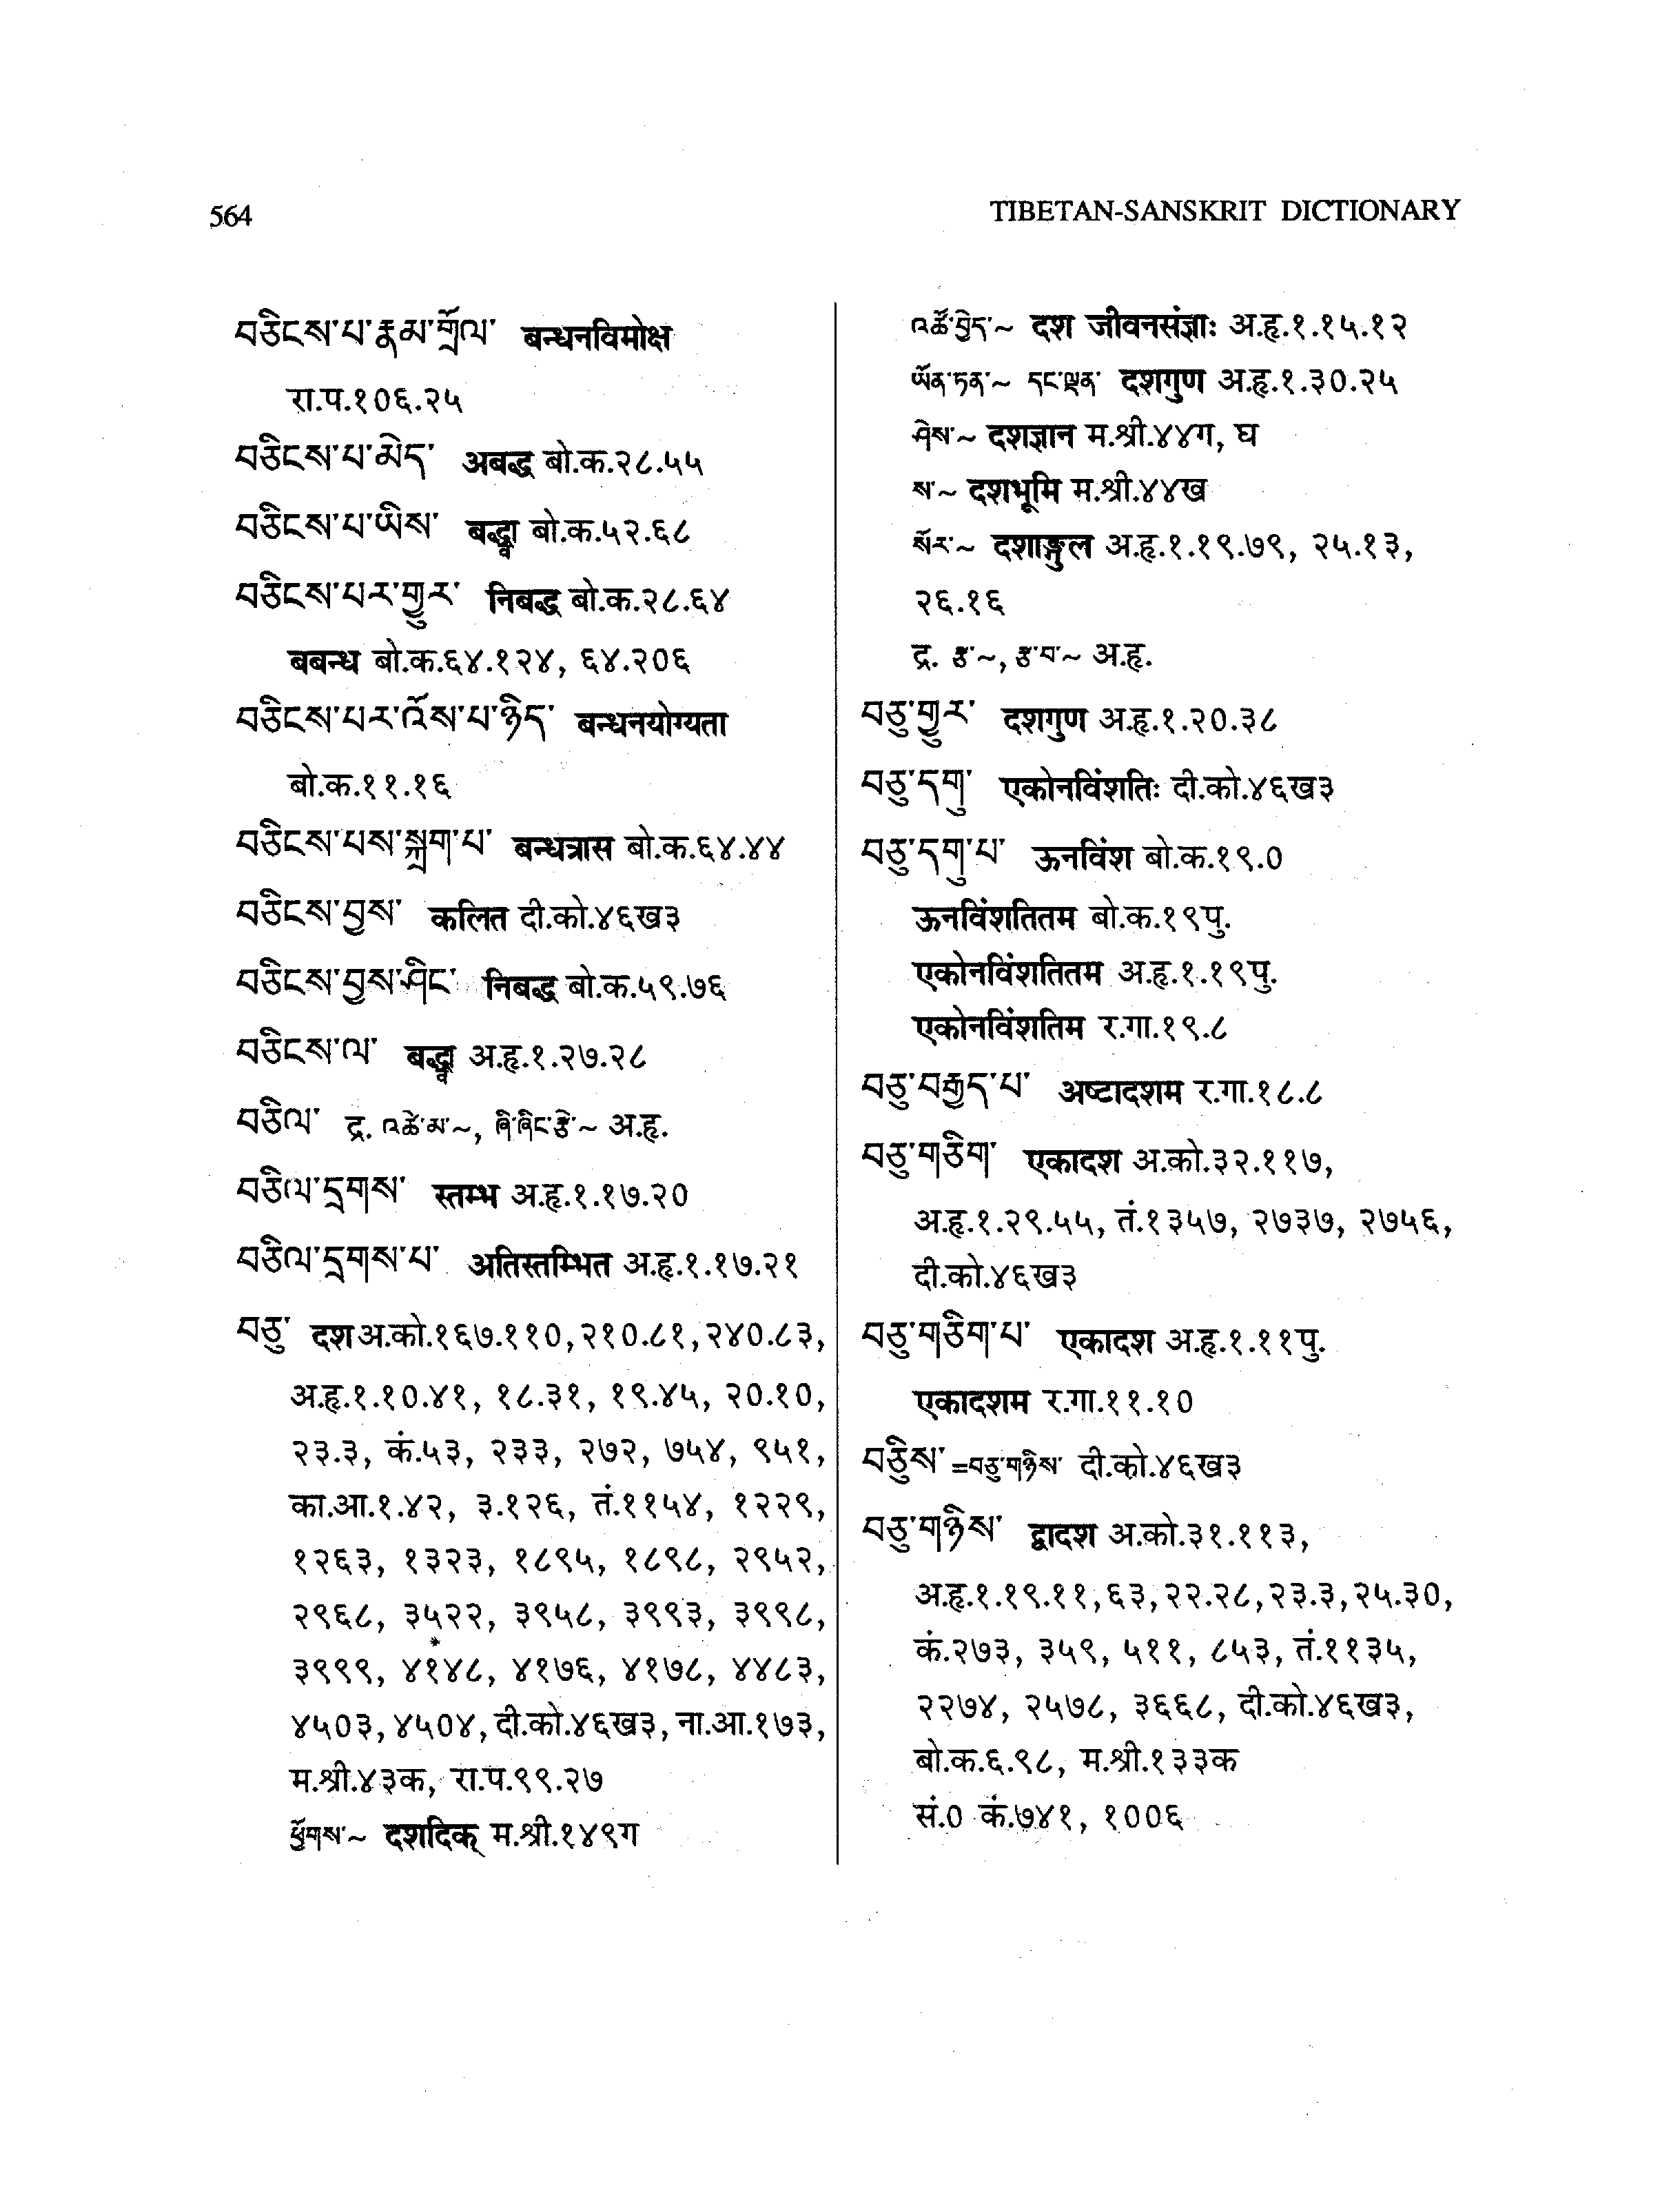 564
TIBETAN-SANSKRIT DICTIONARY
བཅིངས་པ་རྣམ་གྲོལ་ बन्धनविमोक्ष
रा.प.१०६.२५
བཅིངས་པ་མེད་ अबद्ध बो.क.२८.५५
བཅིངས་པ་ཡིས་ बद्ध्वा बो.क.५२.६८
བཅིངས་པར་གྱུར་ निबद्ध बो.क.२८.६४
बबन्ध बो.क.६४.१२४, ६४.२०६
བཅིངས་པར་འོས་པ་ཉིད་ बन्धनयोग्यता
बो.क.११.१६
བཅིངས་པས་སྐྲག་པ་ बन्धत्रास बो.क.६४.४४
བཅིངས་བྱས་ कलित दी.को.४६ख३
བཅིངས་བྱས་ཤིང་ निबद्ध बो.क.५९.७६
བཅིངས་ལ་ बद्ध्वा अ.हृ.१.२७.२८
བཅིལ་ द्र. འཚེམ་~, ཞི་ཞིང་རྩེ་~ अ.हृ.
བཅིལ་དྲགས་ स्तम्भ अ.हृ.१.१७.२०
བཅིལ་དྲགས་པ་ अतिस्तम्भित अ.हृ.१.१७.२१
བཅུ་ दश अ.को.१६७.११०, २१०.८१, २४०.८३,
अ.हृ.१.१०.४१, १८.३१, १९.४५, २०.१०,
२३.३, कं.५३, २३३, २७२, ७५४, ९५१,
का.आ.१.४२, ३.१२६, तं.११५४, १२२९,
१२६३, १३२३, १८९५, १८९८, २९५२,
२९६८, ३५२२, ३९५८, ३९९३, ३९९८,
३९९९, ४१४८, ४१७६, ४१७८, ४४८३,
४५०३, ४५०४, दी.को.४६ख३, ना.आ.१७३,
म.श्री.४३क, रा.प.९९.२७
ཕྱོགས་~ दशदिक् म.श्री.१४९ग
འཚོ་བྱེད་~ दश जीवनसंज्ञाः अ.हृ.१.१५.१२
ཡོན་ཏན་~ དང་ལྡན་ दशगुण अ.हृ.१.३०.२५
ཤེས་~ दशज्ञान म.श्री.४४ग, घ
ས་~ दशभूमि म.श्री.४४ख
སོར་~ दशाङ्गुल अ.हृ.१.१९.७९, २५.१३,
२६.१६
द्र. རྩ་~, རྩ་བ་~ अ.हृ.
བཅུ་གྱུར་ दशगुण अ.हृ.१.२०.३८
བཅུ་དགུ་ एकोनविंशतिः दी.को.४६ख३
བཅུ་དགུ་པ་ ऊनविंश बो.क.१९.०
ऊनविंशतितम बो.क.१९पु.
एकोनविंशतितम अ.हृ.१.१९पु.
एकोनविंशतिम र.गा.१९.८
བཅུ་བརྒྱད་པ་ अष्टादशम र.गा.१८.८
བཅུ་གཅིག་ एकादश अ.को.३२.११७,
अ.हृ.१.२९.५५, तं.१३५७, २७३७, २७५६,
दी.को.४६ख३
བཅུ་གཅིག་པ་ एकादश अ.हृ.१.११पु.
एकादशम र.गा.११.१०
བཅིུས་ =བཅུ་གཉིས་ दी.को.४६ख३
བཅུ་གཉིས་ द्वादश अ.को.३१.११३,
अ.हृ.१.१९.११, ६३, २२.२८, २३.३, २५.३०,
कं.२७३, ३५९, ५११, ८५३, तं.११३५,
२२७४, २५७८, ३६६८, दी.को.४६ख३,
बो.क.६.९८, म.श्री.१३३क
सं.० कं.७४१, १००६